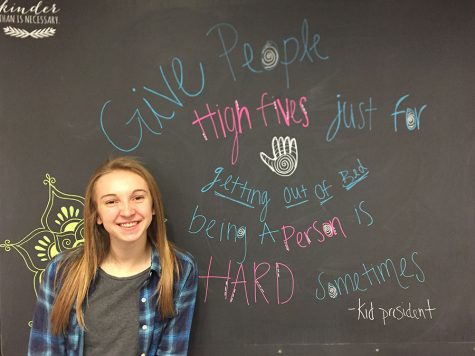 kinder
THAN IS NECESSARY.
Give People
High fives just for
getting out of Bed
being A Person is
HARD sometimes
-kid president